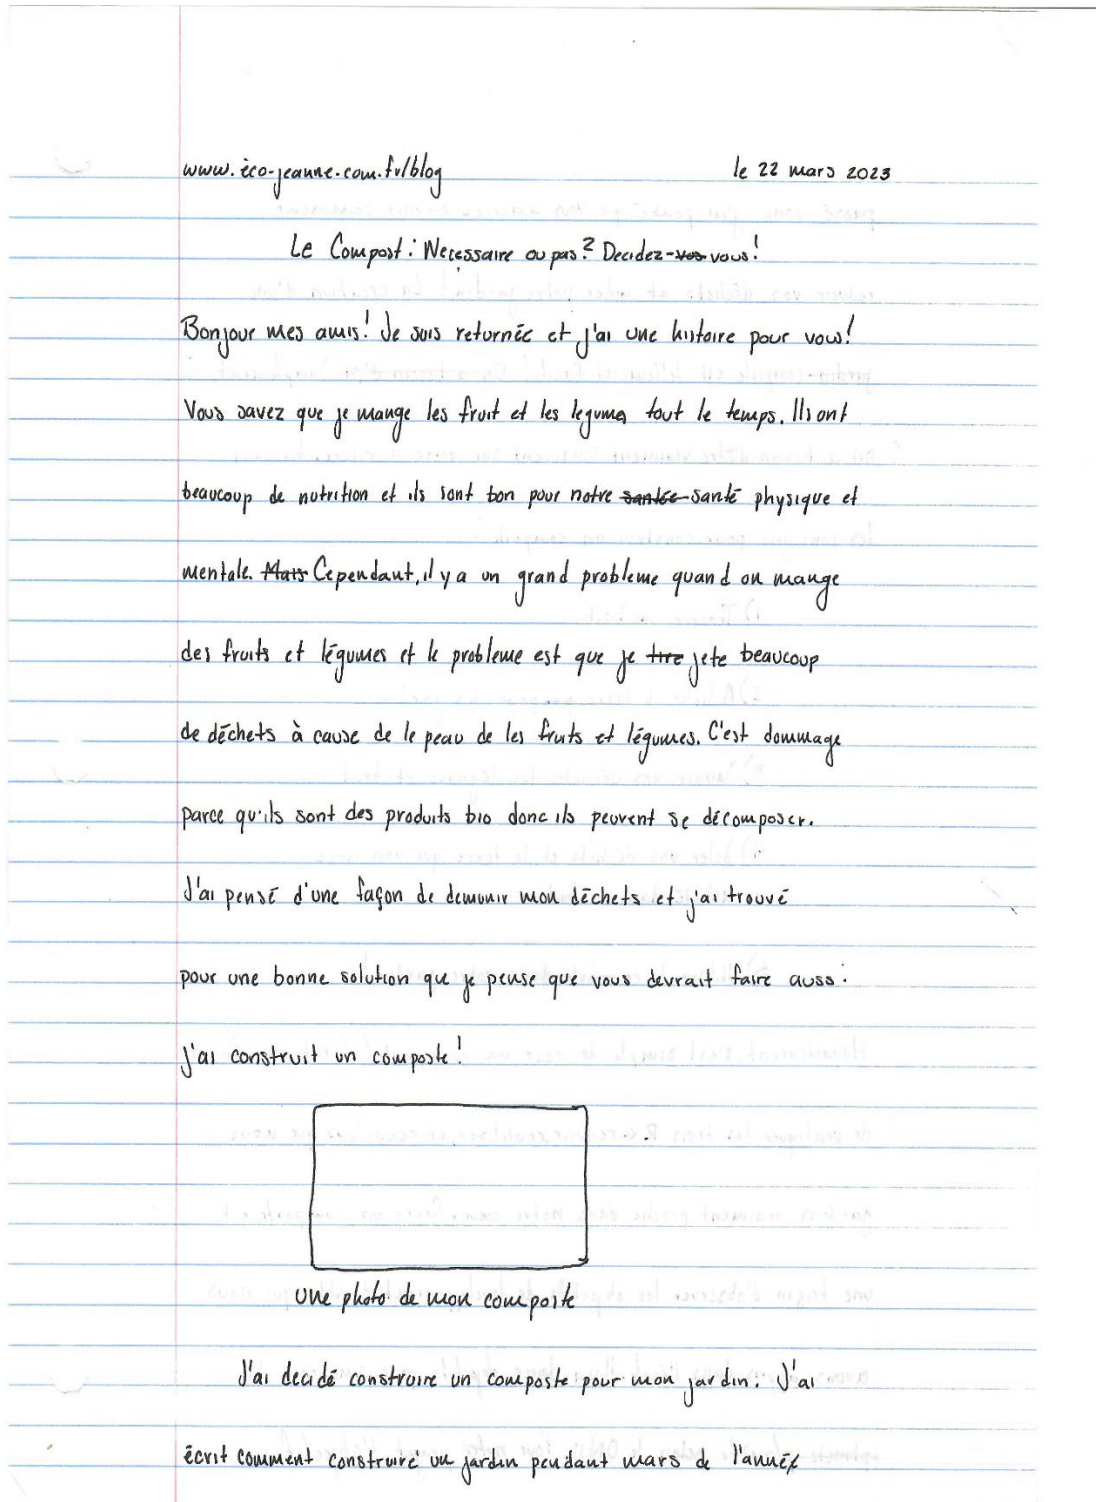 www.èco-jeanne.com.fr/blog le 22 mars 2023
Le Compost: Necessaire ou pas? Decidez-vos vous!
Bonjour mes amis! Je suis returnée et j'ai une histoire pour vous!
Vous savez que je mange les fruit et les legumes tout le temps. Ils ont
beaucoup de nutrition et ils sont bon pour notre santée santé physique et
mentale. Mais Cependant, il y a un grand probleme quand on mange
des fruits et légumes et le probleme est que je tire jete beaucoup
de déchets à cause de le peau de les fruits et légumes. C'est dommage
parce qu'ils sont des produits bio donc ils peuvent se décomposer.
J'ai pensé d'une façon de demunir mon déchets et j'ai trouvé
pour une bonne solution que je pense que vous devrait faire aussi:
j'ai construit un composte!
une photo de mon composte
J'ai decidé construire un composte pour mon jardin. J'ai
écrit comment construire un jardin pendant mars de l'année